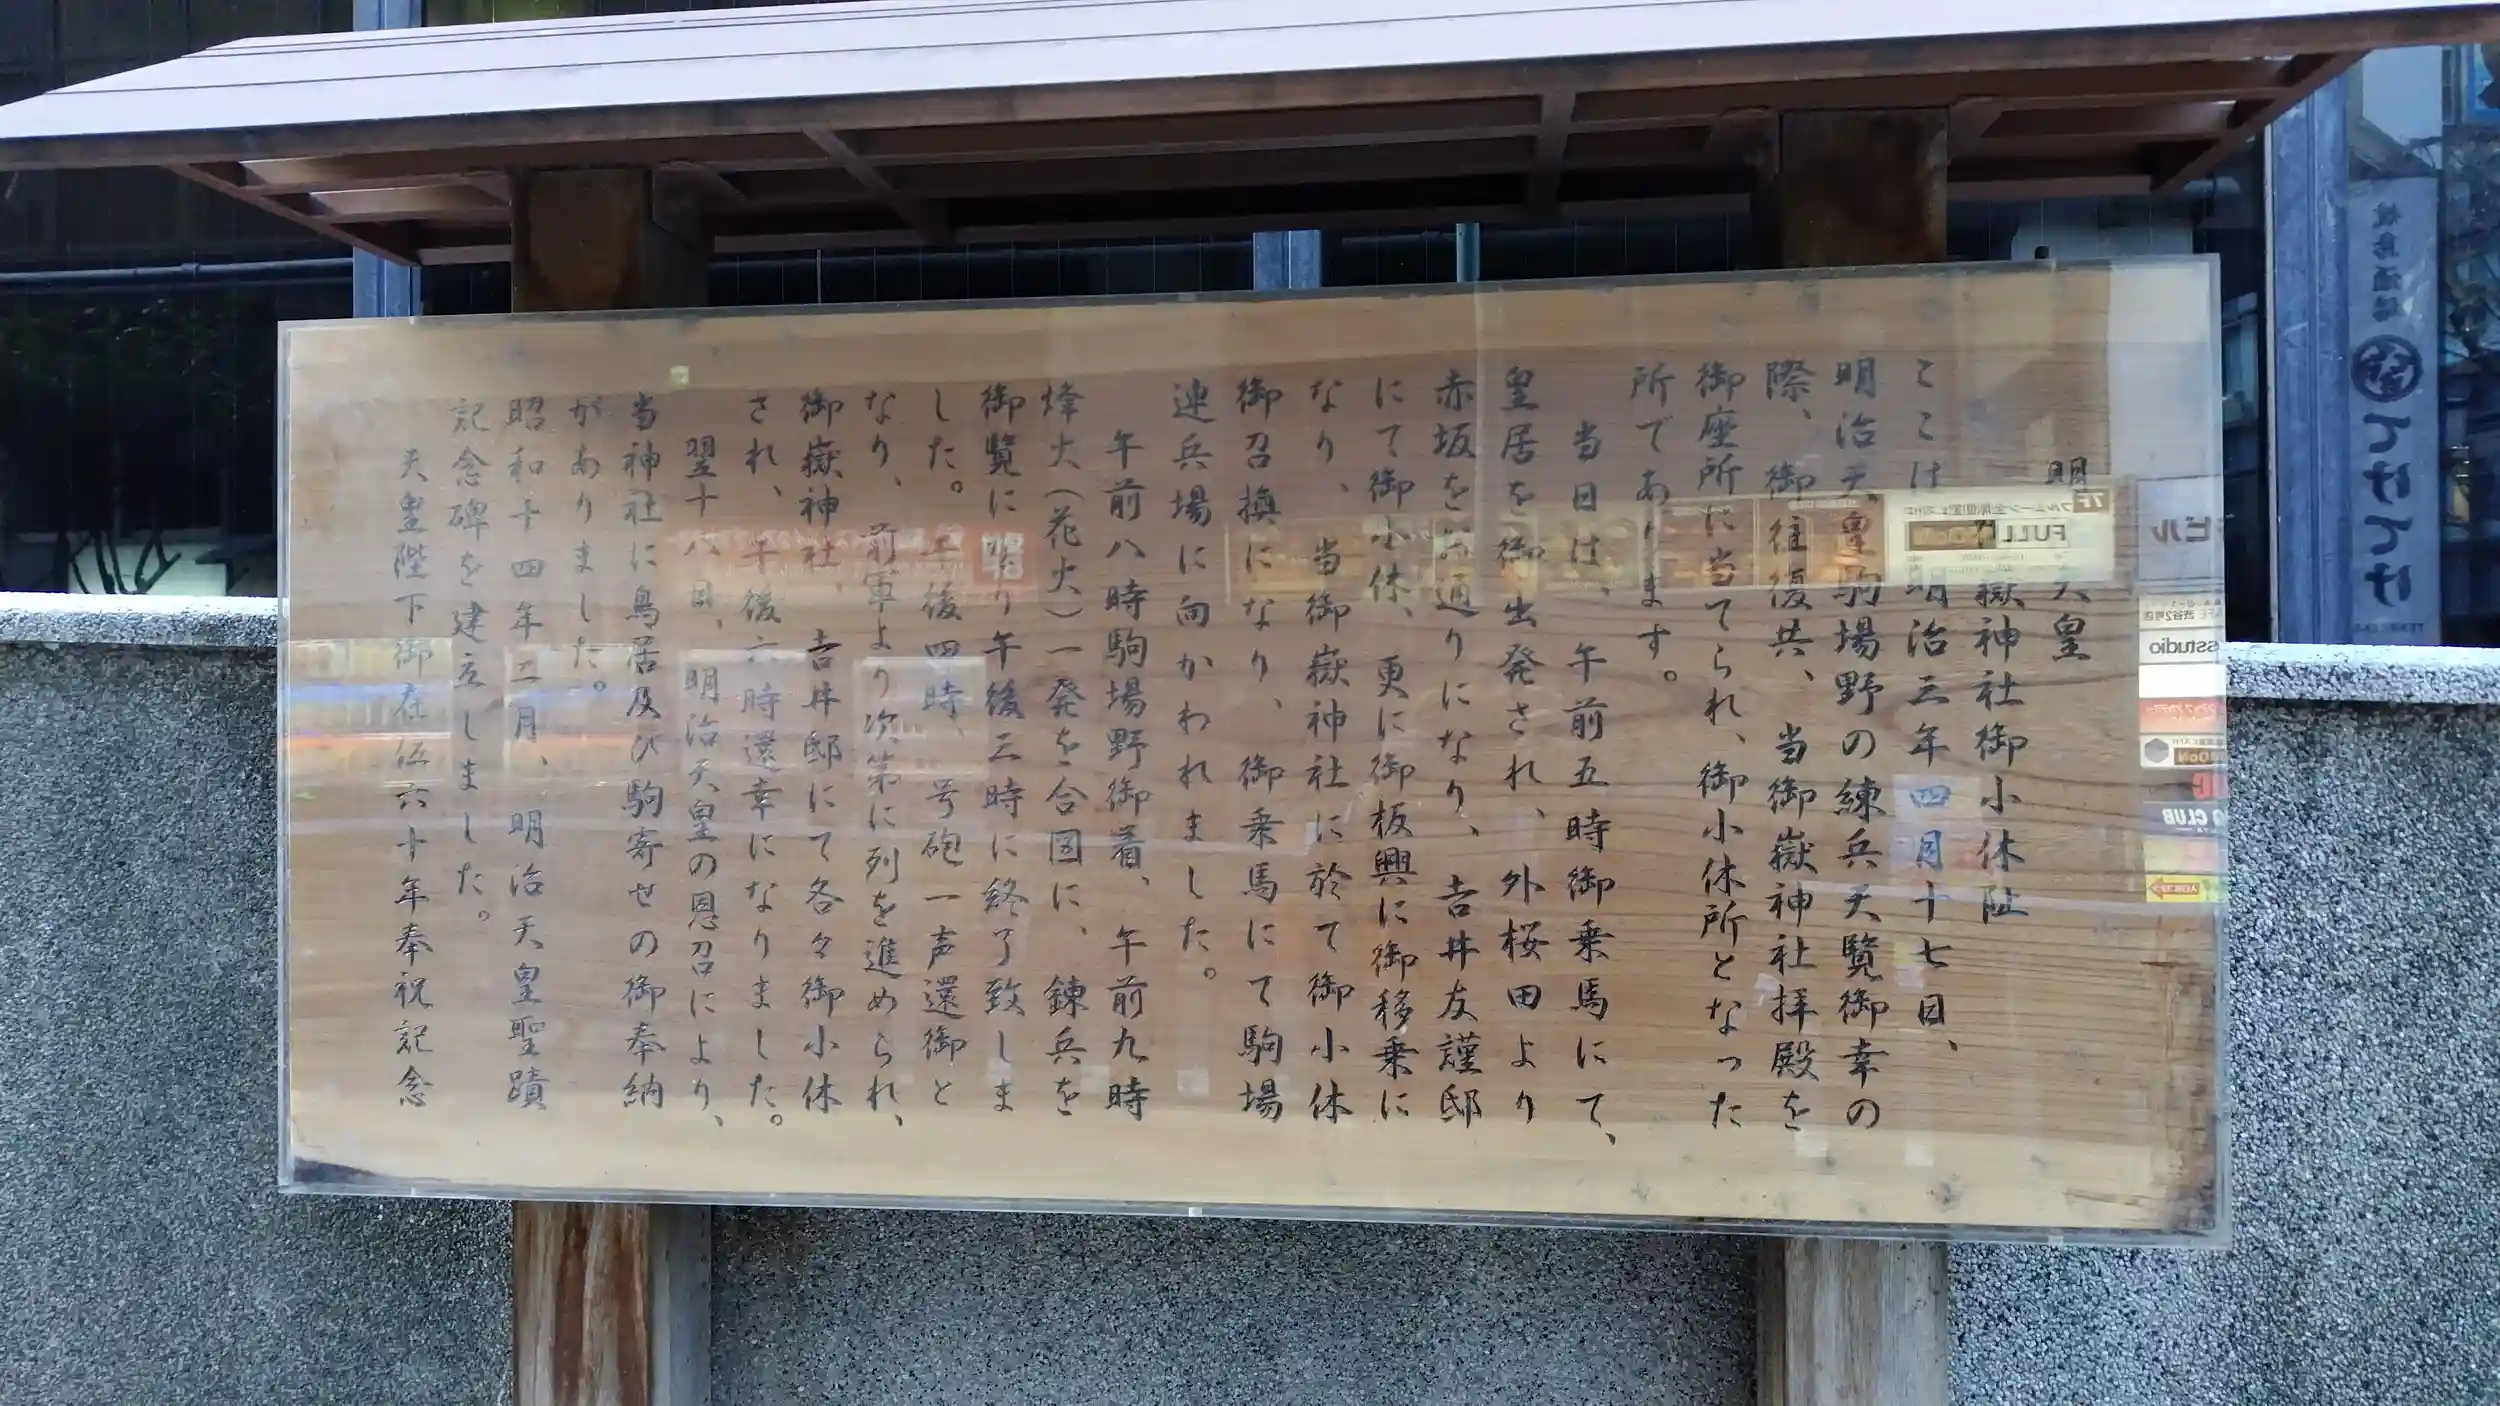 明 天皇
嶽神社御小休趾
ここは 明治三年四月十七日、
明治天皇駒場野の練兵天覧御幸の
際、御往復共、当御嶽神社拝殿を
御座所に当てられ、御小休所となった
所であります。
当日は、午前五時御乗馬にて、
皇居を御出発され、外桜田より
赤坂を 通りになり、吉井友謹邸
にて御小休、更に御板輿に御移乗に
なり、当御嶽神社に於て御小休
御召換になり、御乗馬にて駒場
連兵場に向かわれました。
午前八時駒場野御着、午前九時
烽火(花火)一発を合図に、錬兵を
御覧になり午後三時に終了致しま
した。午後四時、号砲一声還御と
なり、前軍より次第に列を進められ、
御嶽神社、吉井邸にて各々御小休
され、午後六時還幸になりました。
翌十八日、明治天皇の恩召により、
当神社に鳥居及び駒寄せの御奉納
がありました。
昭和十四年二月、明治天皇聖蹟
記念碑を建立しました。
天皇陛下御在位六十年奉祝記念
てけてけ
7F
FULL
ビル
studio
CLUB